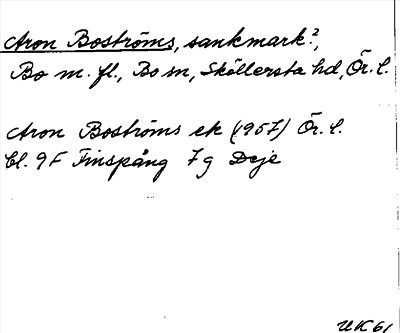 Aron Boströms, sankmark?,
Bo m. fl., Bo sn, Sköllersta hd, Ör. l.
Aron Boströms ek (1957) Ör. l.
Bl. 9F Finspång 7g Deje
UK 61